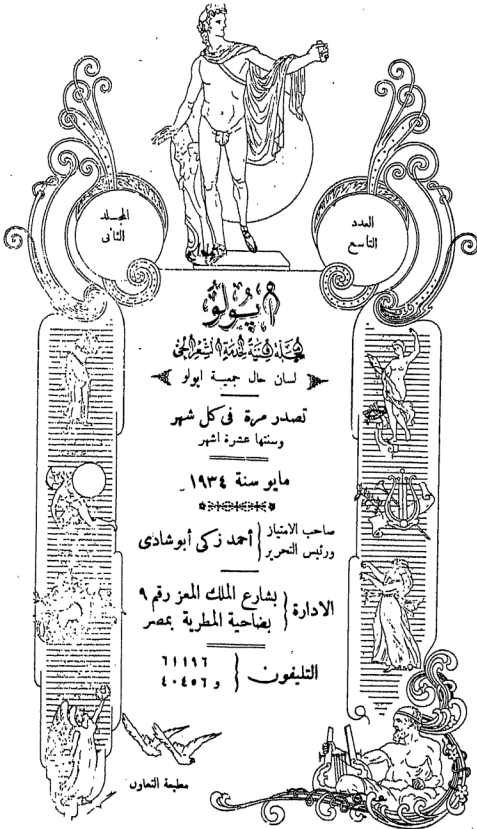 المجلد
الثانى
العدد
التاسع
أپولو
مجلة فنية لخدمة الشعر الحى
لسان حال جمعية اپولو
تصدر مرة فى كل شهر
وسنتها عشرة اشهر
مايو سنة ١٩٣٤
صاحب الامتياز
ورئيس التحرير
أحمد زكى أبو شادى
الادارة
بشارع الملك المعز رقم ٩
بضاحية المطرية بمصر
التليفون
٦١١٩٦
و ٤٠٤٥٦
مطبعة التعاون